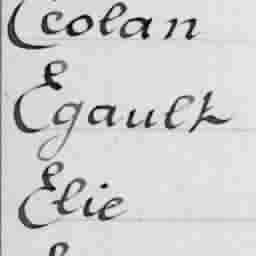 Ecolan
Egault
Elie